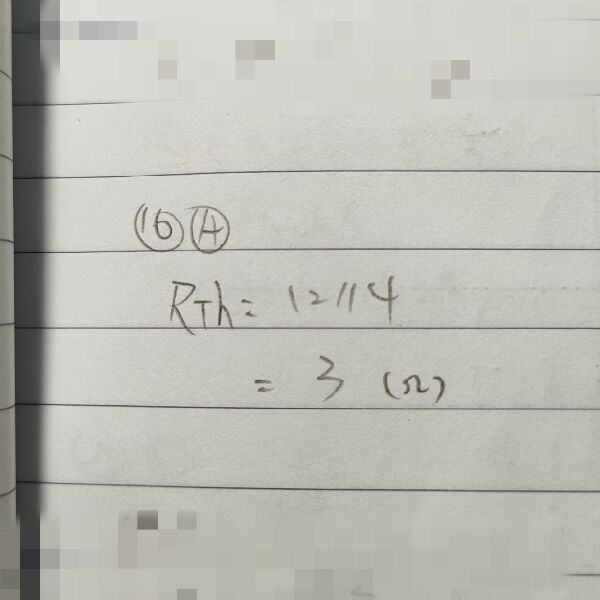 ⑯Ⓐ
RTh = 12//4
= 3 (Ω)